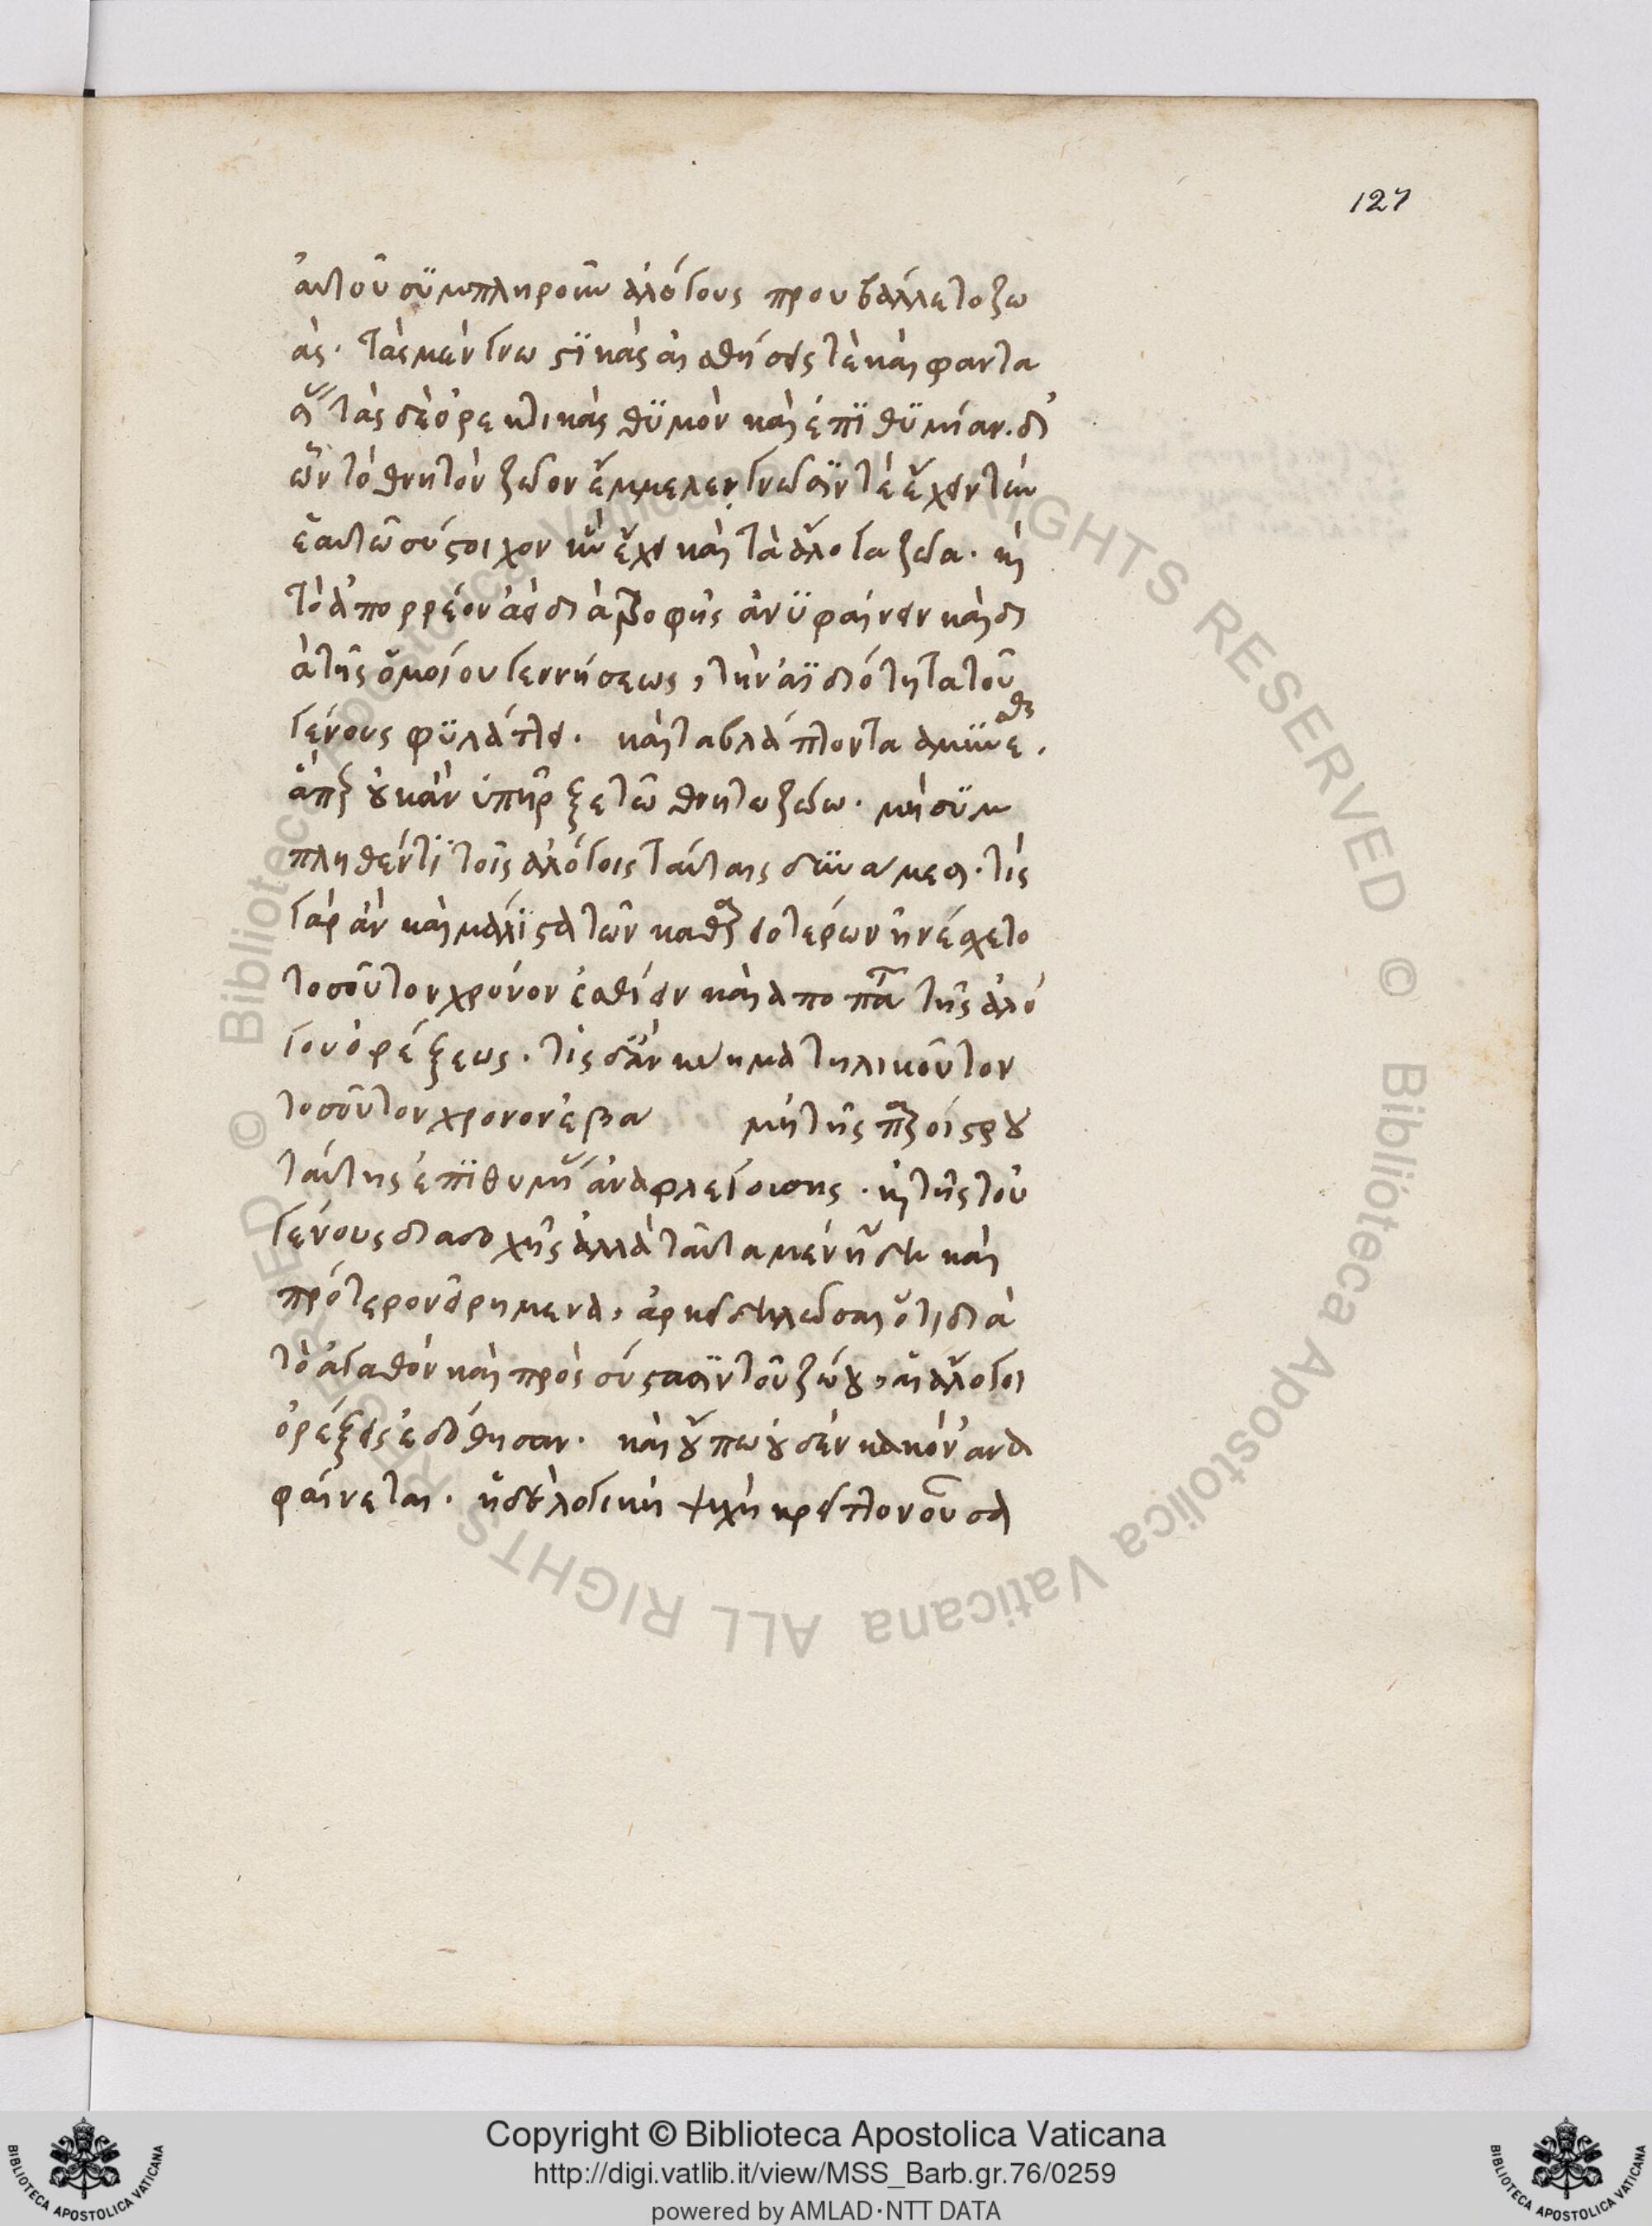 127
αὐτοῦ συμπληροῦν ἀλόγους προυβάλλετο ζω
ὰς. τὰς μὲν γνωστικὰς αἰσθήσεις τὲ καὶ φαντα
σί τὰς δὲ ὀρεκτικὰς θυμὸν καὶ ἐπιθυμίαν. δι
ὧν τὸ θνητὸν ζῶον ἔμμελλεν γνῶσιν τὲ ἔχειν τῶν
ἑαυτῶ σύστοιχον ἣν ἔχει καὶ τὰ ἄλογα ζῶα. καὶ
τὸ ἀπορρέον ἀεὶ διὰ τροφῆς ἀνυφαίνειν καὶ δι
ὰ τῆς ὁμοίου γεννήσεως, τὴν ἀϊδιότητα τοῦ
γένους φυλάττει. καὶ τα βλάπτοντα ἀμύνεσθαι.
ἅπερ οὐκ ἂν ὑπῆρξε τῶ θνητω ζώω. μὴ συμ
πληθέντι τοῖς ἀλόγοις ταύταις δυνάμεσι. τίς
γὰρ ἂν καὶ μάλιστα τῶν καθαρειοτέρων ἠνέσχετο
τοσοῦτον χρόνον ἐσθίειν καὶ αποπα τῆς ἀλό
γου ὀρέξεως. τίς δ' ἂν κύημα τηλικοῦτον
τοσοῦτον χρονον ἐβα μὴ τῆς παροίστρου
ταύτης ἐπιθυμί ἀναφλεγούσης. καὶ τῆς τοῦ
γένους διαδοχῆς ἀλλὰ ταῦτα μὲν ἤδη καὶ
πρότερον εἰρημενα, ἀρκεῖ δηλῶσαι ὅτι διὰ
τὸ ἀγαθὸν καὶ πρὸς σύστασιν τοῦ ζώου, αἱ ἄλογοι
ὀρέξεις ἐδόθησαν. καὶ οὔπω οὐδὲν κακὸν ἀνα
φαίνεται. ἡ δὲ λογικὴ ψυχὴ κρείττον οὖσα
Copyright © Biblioteca Apostolica Vaticana
http://digi.vatlib.it/view/MSS_Barb.gr.76/0259
powered by AMLAD·NTT DATA